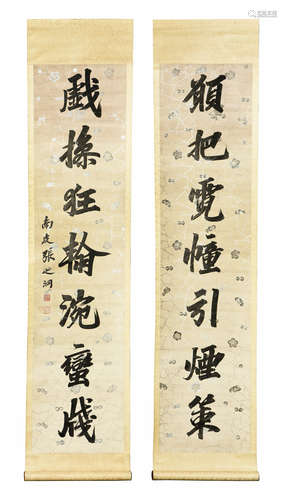 願把霓幢引煙策
戲操狂翰涴蠻牋
南皮張之洞